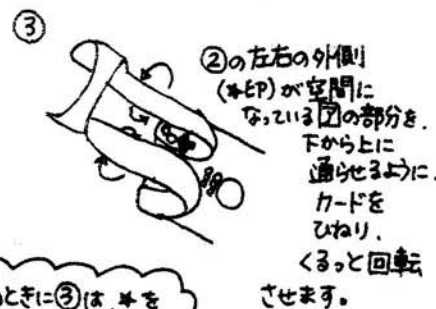 ③
②の左右の外側
(*EP)が空間に
なっている㋐の部分を、
下から上に
通らせるように、
カードを
ひねり、
くるっと回転
させます。
ときに③は、*を